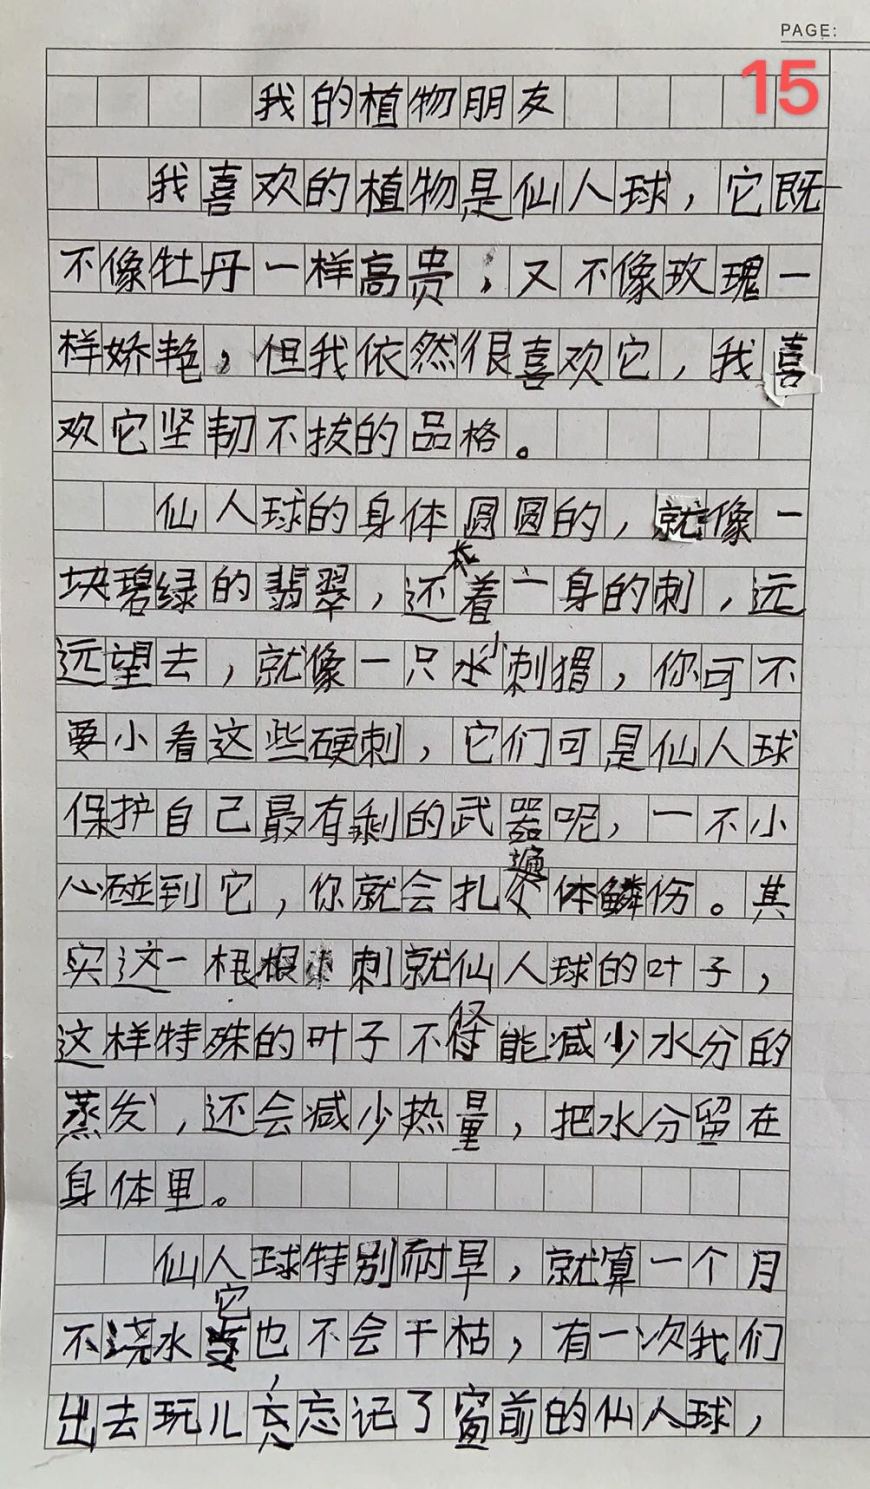 PAGE:
15
我的植物朋友
我喜欢的植物是仙人球，它既
不像牡丹一样高贵，又不像玫瑰一
样娇艳，但我依然很喜欢它，我喜
欢它坚韧不拔的品格。
仙人球的身体圆圆的，就像一
块碧绿的翡翠，还长着一身的刺，远
远望去，就像一只小刺猬，你可不
要小看这些硬刺，它们可是仙人球
保护自己最有利的武器呢，一不小
心碰到它，你就会扎遍体鳞伤。其
实这一根根小刺就仙人球的叶子，
这样特殊的叶子不仅能减少水分的
蒸发，还会减少热量，把水分留在
身体里。
仙人球特别耐旱，就算一个月
不浇水它也不会干枯，有一次我们
出去玩儿，忘记了窗前的仙人球，